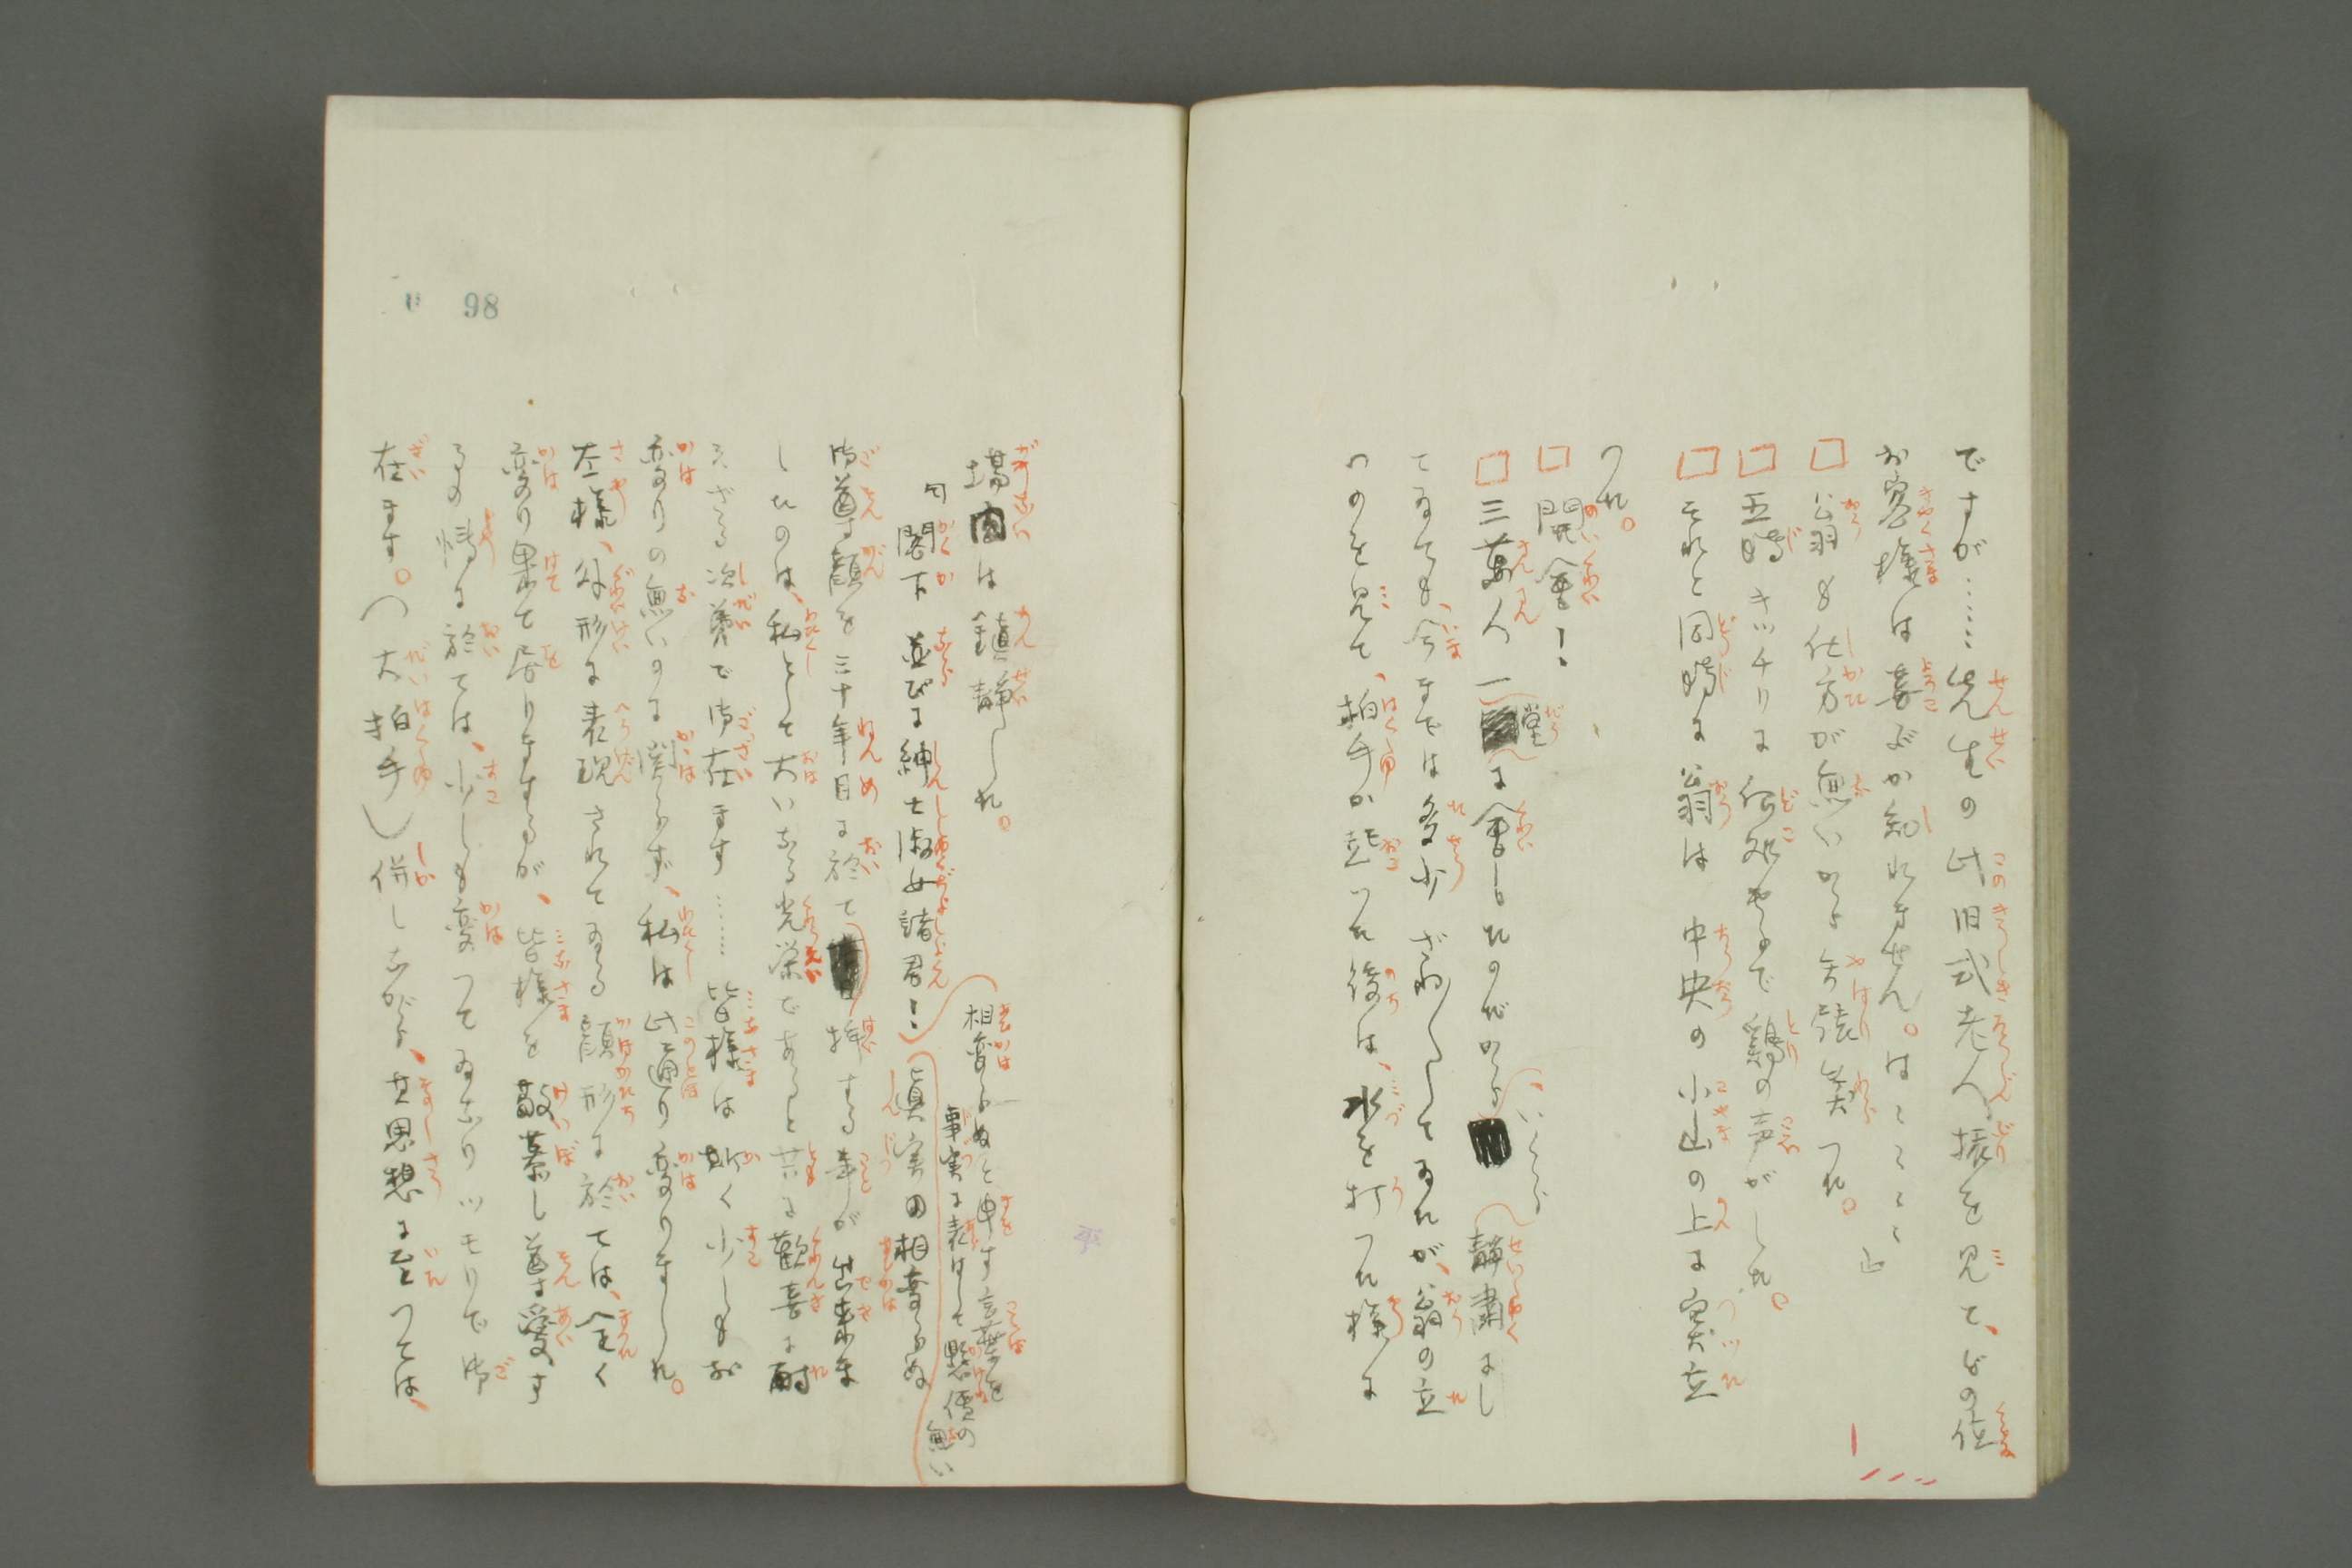 ですが……先生の此旧式老人振を見て、どの位
お客様は喜ぶか知れません。はゝゝゝ
□翁も仕方が無いから矢張笑つた。
□五時キッチリに何処やらで鶏の声がした。
□それと同時に翁は中央の小山の上に突立
つた。
□開会！
□三萬人一堂に会したのだから、いくら静粛にし
てゐても、今までは多少ざわ〳〵してゐたが、翁の立
つのを見て、拍手が起つた後は、水を打つた様に
場内は鎮静した。
閣下並びに紳士淑女諸君！相変らぬと申す言葉を
事実に表はして懸値の
無い
真実の相変らぬ
御尊顔を三十年目に於て拝する事が出来ま
したのは、私として大いなる光栄であると共に歓喜に耐
えざる次第で御在ます……皆様は斯く少しもお
変りの無いのに関らず、私は此通り変りました。
左様、外形に表現されてゐる顔形に於ては、全く
変り果て居りまするが、皆様を敬慕し尊愛す
るの情に於ては、少しも変つてゐないツモリで御
在ます。（大拍手）併しながら、其思想に至つては、
98